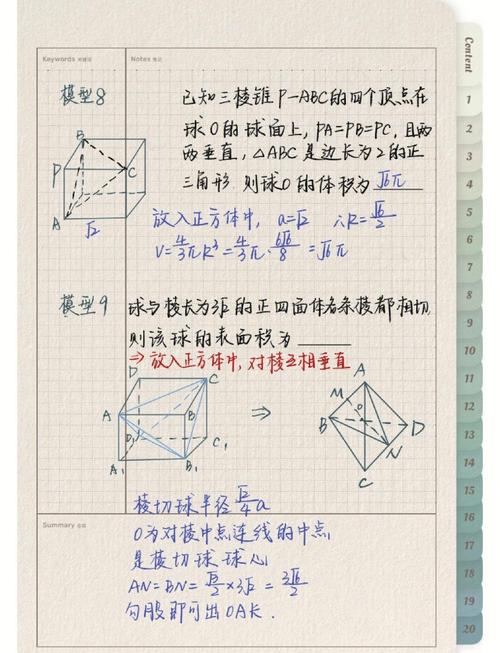 Keywords 关键词
Notes 笔记
模型8
已知三棱锥P-ABC的四个顶点在
球O的球面上,PA=PB=PC,且两
两垂直,△ABC是边长为2的正
三角形.则球O的体积为 √6π
B
P
C
A
√2
放入正方体中, a=√2 ∴R=√6/2
V=4/3πR³=4/3π·6√6/8=√6π
模型9
球与棱长为3√2的正四面体各条棱都相切
则该球的表面积为
⇒放入正方体中,对棱互相垂直
D
C
A
B
D₁
C₁
A₁
B₁
⇒
A
M
O
B
D
N
C
棱切球半径√2/4a
Summary 总结
O为对棱中点连线的中点
是棱切球球心
AN=BN=√3/2×3√2=
勾股即可出OA长.
Content
1
2
3
4
5
6
7
8
9
10
11
12
13
14
15
16
17
18
19
20